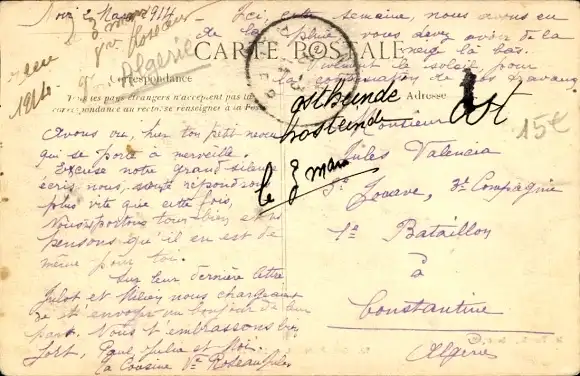 2 Mars 1914
Ici, cette semaine, nous avons eu
de la pluie vous devez avoir de la
neige là bas.
le soleil, pour
la continuation de nos travaux
3 mars
1914
Algérie
CARTE POSTALE
Correspondance
Adresse
Tous les pays étrangers n'acceptent pas la
correspondance au recto se renseignes à la Poste
le 3 mars
Ast
15€
Avons vu, hier ton petit neveu
qui se porte à merveille.
Excuse notre grand silence
écris nous, répondrons
plus vite que cette fois.
Nous portons tous bien et
pensons qu'il en est de
même pour toi.
Sur leur dernière lettre
Julot et nous chargeaient
de t' envoyer un bonjour de leur
part. Nous t'embrassons bien
fort, Paul Julia et Moi.
La Cousine Vve
Monsieur
Jules Valencia
3e Zouave, 3e Compagnie
1e Bataillon
à
Constantine
Algérie